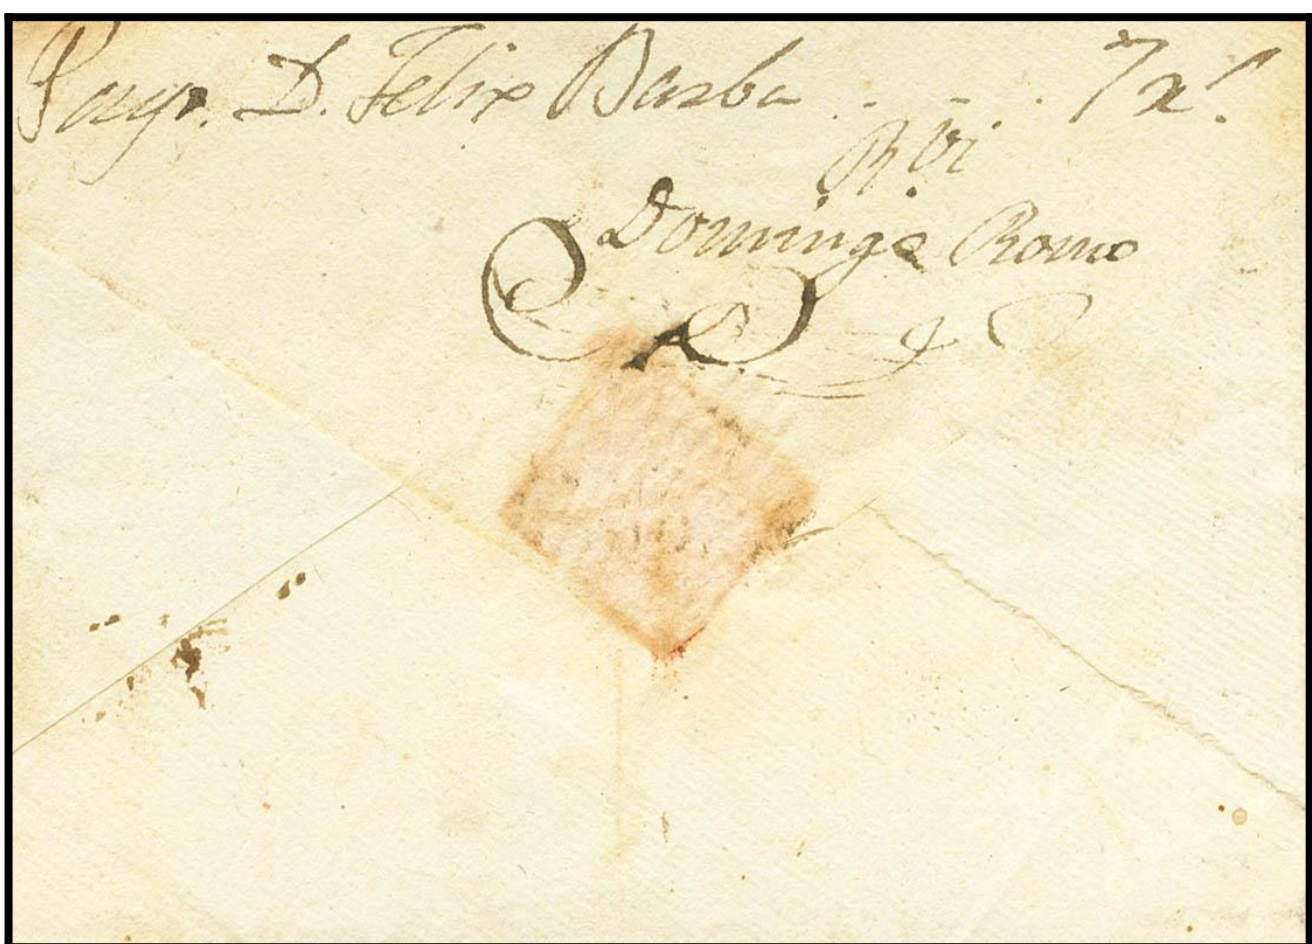 Pago. D. Felix Barba . - . 7 rs.
R.vi
Domingo Romo